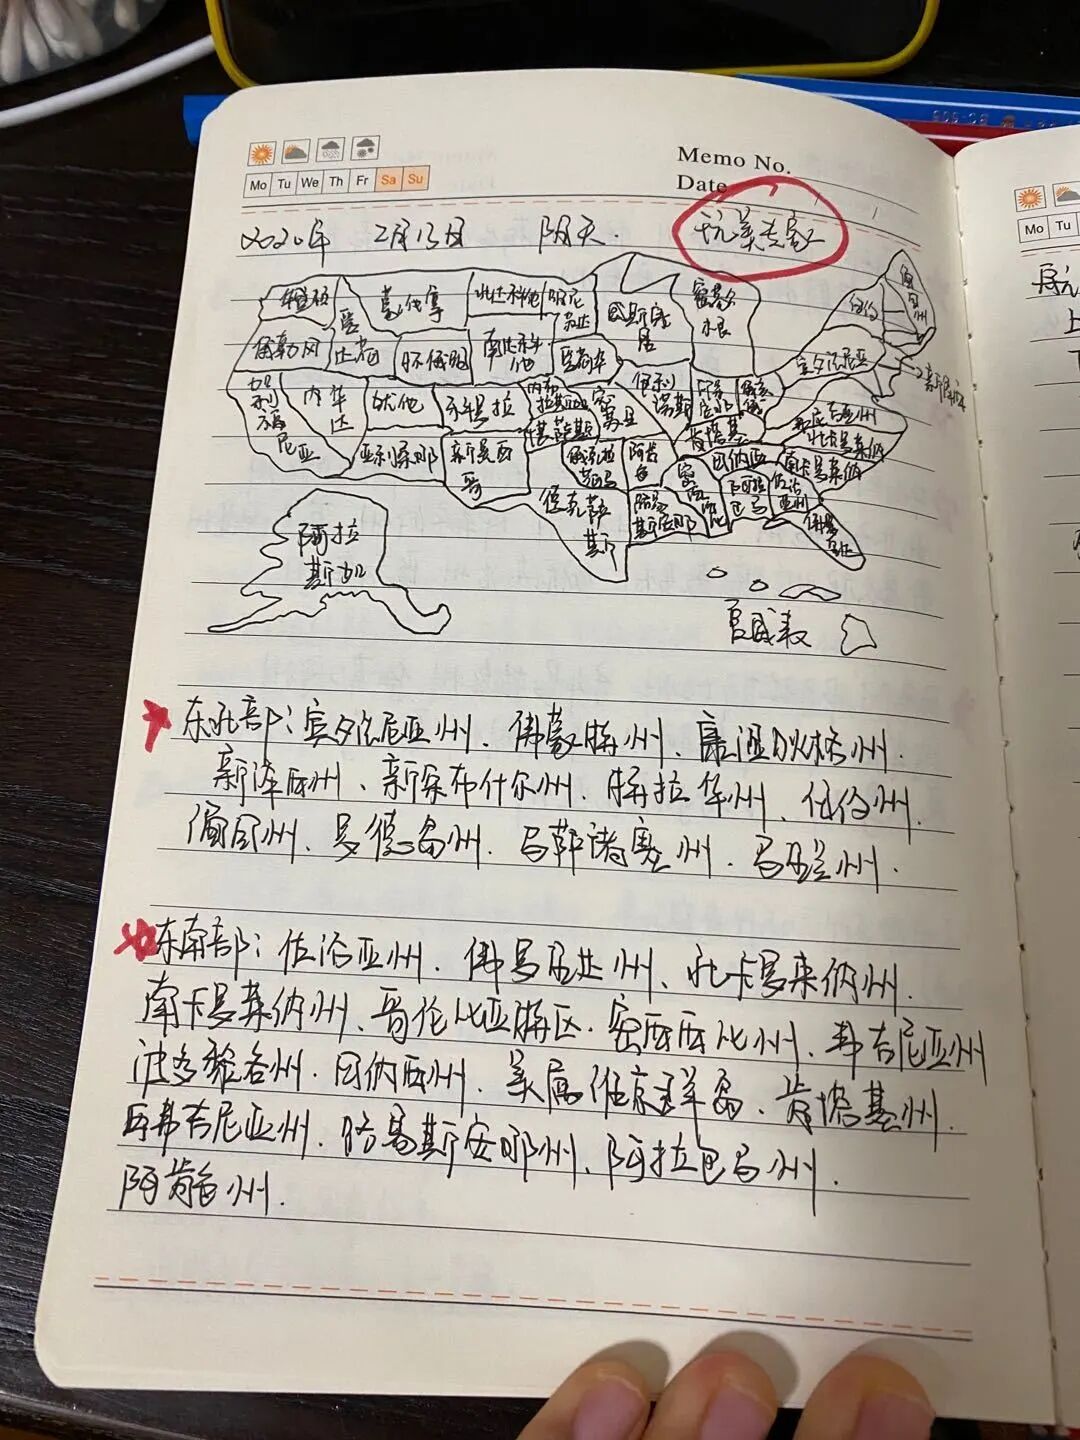 Memo No.
Mo Tu We Th Fr Sa Su
Date
2020年 2月13日 阴天.
玩美专家
华盛顿 蒙大拿 北达科他 明尼苏达 威斯康星 密歇根 缅因州
纽约
俄勒冈 爱达荷 怀俄明 南达科他 爱荷华 宾夕法尼亚
加利福尼亚 内华达 犹他 科罗拉 内布拉斯加 密苏里 伊利诺斯
堪萨斯 肯塔基 北卡罗莱纳
亚利桑那 新墨西哥 俄克拉荷马 阿肯色 田纳西 南卡罗莱纳
德克萨斯 路易斯安那 密西西比 阿拉巴马 佐治亚州 佛罗里达
阿拉斯加
夏威夷
东北部：宾夕法尼亚州、佛蒙特州、康涅狄格州.
新泽西州、新罕布什尔州、特拉华州、纽约州.
缅因州、罗德岛州、马萨诸塞州、马里兰州.
东南部：佐治亚州、佛罗里达州、北卡罗来纳州.
南卡罗莱纳州、哥伦比亚特区、密西西比州、弗吉尼亚州
波多黎各州、田纳西州、美属维京群岛、肯塔基州.
西弗吉尼亚州、路易斯安那州、阿拉巴马州.
阿肯色州.
Mo Tu